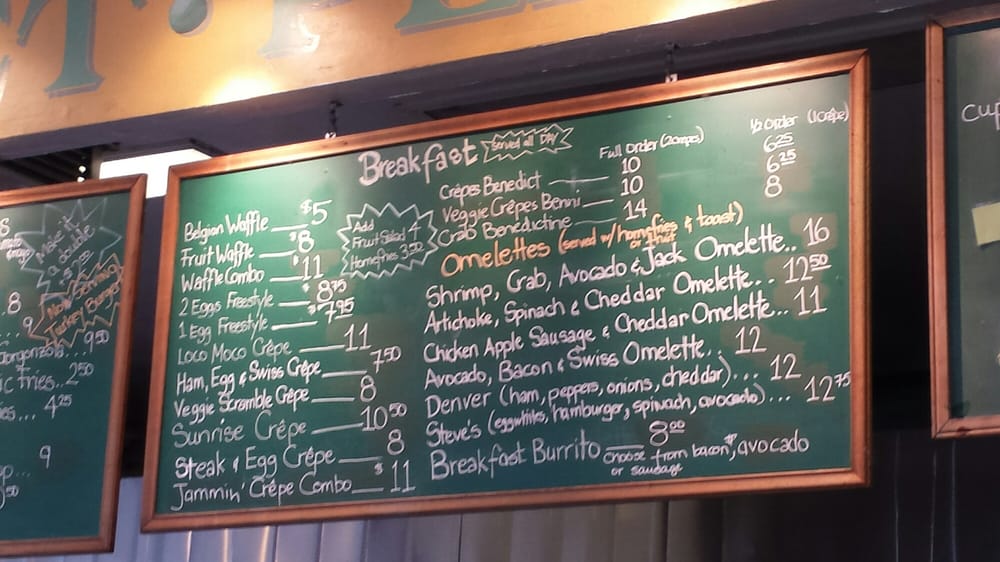 Breakfast served all DAY
Belgian Waffle $5
Fruit Waffle $8
Waffle Combo $11
2 Eggs Freestyle $8.75
1 Egg Freestyle $7.95
Loco Moco Crêpe 11
Ham, Egg & Swiss Crêpe 7.50
Veggie Scramble Crêpe 8
Sunrise Crêpe 10.50
Steak & Egg Crêpe 8
Jammin' Crêpe Combo $11
Add
Fruit Salad 4
Homefries 3.50
Full Order (2 crêpes) 1/2 Order (1 Crêpe)
Crêpes Benedict 10 6.25
Veggie Crêpes Benni 10 6.25
Crab Benedictine 14 8
Omelettes (served w/ homefries & toast)
or fruit
Shrimp, Crab, Avocado & Jack Omelette.. 16
Artichoke, Spinach & Cheddar Omelette... 12.50
Chicken Apple Sausage & Cheddar Omelette... 11
Avocado, Bacon & Swiss Omelette.. 12
Denver (ham, peppers, onions, cheddar)... 12
Steve's (eggwhites, hamburger, spinach, avocado)... 12.75
Breakfast Burrito 8.00 choose from bacon, avocado
or sausage
Make it
a double
Now Serving
Turkey Burger
.8
9
Gorgonzola... 9.50
ic Fries..2.50
es... 4.25
9
Cup